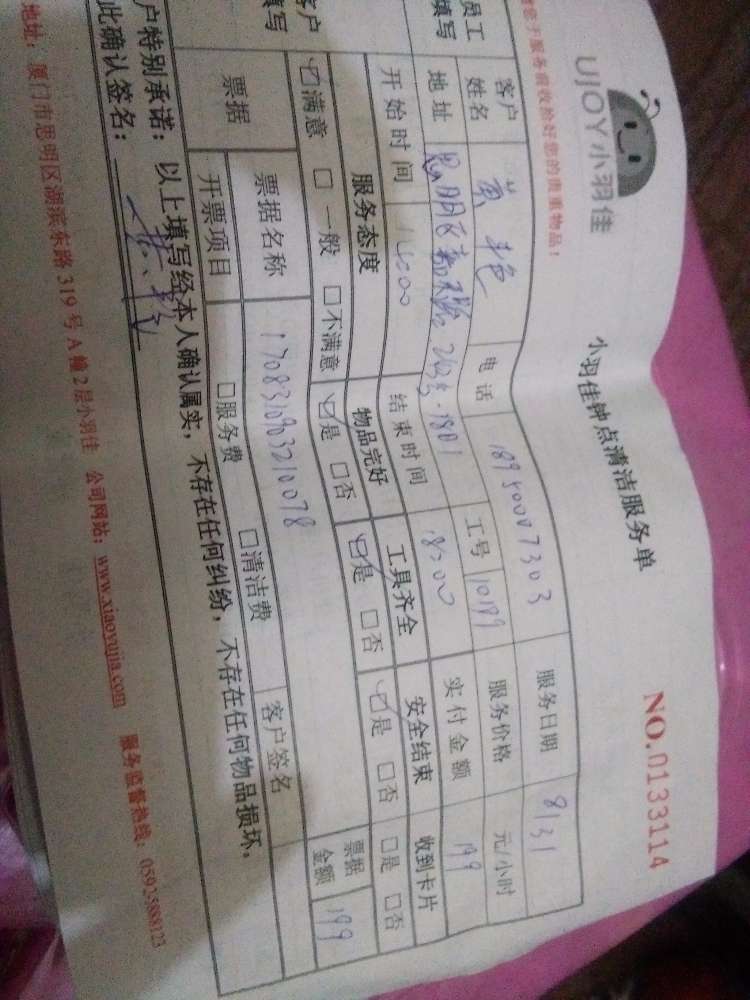 UJOY小羽佳
小羽佳钟点清洁服务单
NO.0133114
您于服务前收拾好您的贵重物品！
员工填写
客户姓名 黄 电话 18950007303 服务日期 8/31
地址 思明区 1801 工号 10189 服务价格 元/小时
开始时间 结束时间 18:00 实付金额 199
客户填写
服务态度 物品完好 工具齐全 安全结束 收到卡片
☑满意 □一般 □不满意 ☑是 □否 ☑是 □否 ☑是 □否 □是 □否
票据 票据名称 1708310903210078 客户签名 票据金额 199
开票项目 □服务费 □清洁费
户特别承诺：以上填写经本人确认属实，不存在任何纠纷，不存在任何物品损坏。
此确认签名：
地址：厦门市思明区湖滨东路319号A幢2层小羽佳 公司网站：www.xiaoyujia.com 服务监督热线：0592-5888123